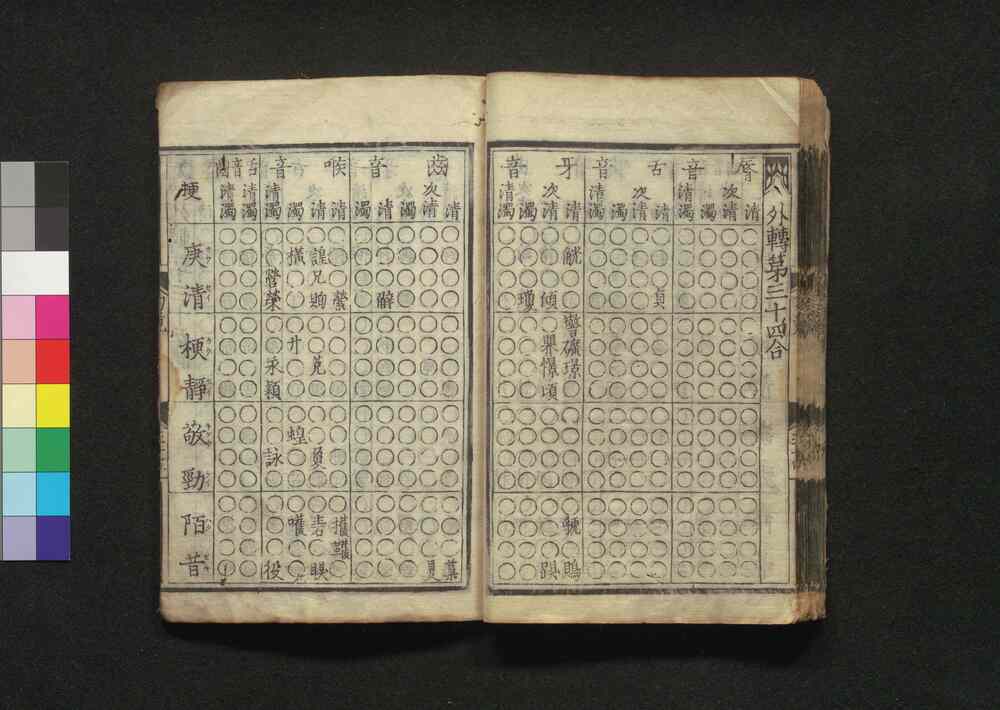 外轉第三十四合
脣音
清
次清
濁
清濁
舌音
清 貞
次清
濁
清濁
牙音
清 觥 礦 璟 虢 鵙
次清 傾 憬 頃
濁 瓊
清濁
齒音
清
次清
濁
清
濁
喉音
清 縈 擭 韄
清 諻 兄 眗 敻 砉 瞁
濁 横 廾 蝗 嚄
清濁 營 榮 永 穎 詠 役
舌音齒
清濁
清濁
梗
庚 清 梗 靜 敬 勁 陌 昔